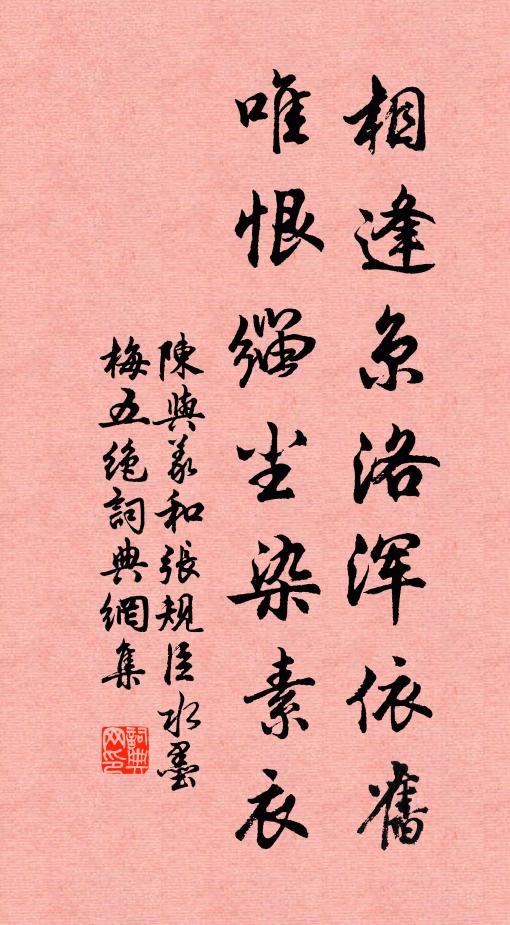 相逢京洛浑依舊
唯恨缁尘染素衣
陳與義和張規臣水墨
梅五绝詞典網集
詞典网印